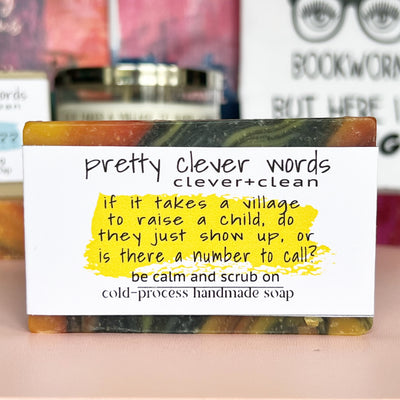 BOOKWORM
BUT HERE I
G
ords
ean
??
pretty clever words
clever+clean
if it takes a village
to raise a child, do
they just show up, or
is there a number to call?
be calm and scrub on
cold-process handmade soap